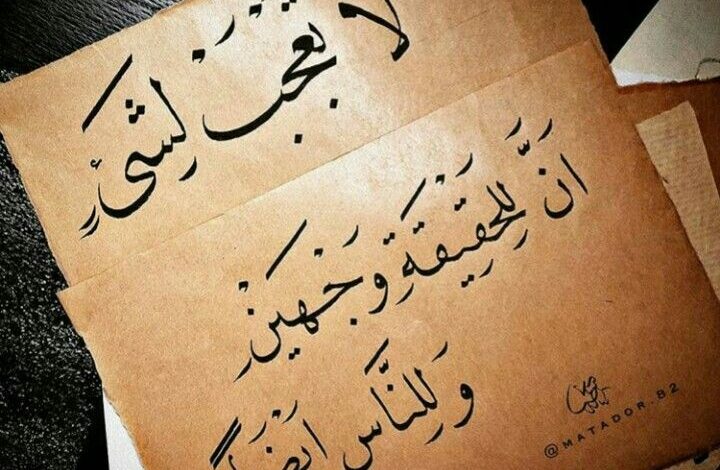 لا تعجبْ لِشَئٍ
انَّ لِلحَقيقَةِ وَجْهَينْ
وَلِلنَّاسِ ايضاً
@MATADOR.B2